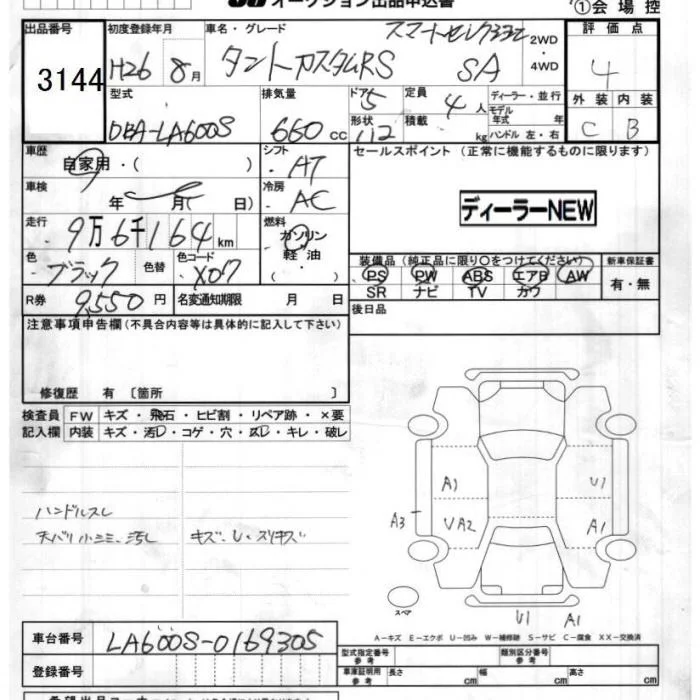 オークション出品申込書
①会場控
出品番号 初度登録年月 車名・グレード 評価点
3144 H26 8月 タントカスタムRS スマートセレクション SA 2WD・4WD 4
型式 排気量 ドア 定員 ディーラー・並行 外装 内装
DBA-LA600S 660cc 5 4人 モデル年式 年 C B
形状 112 積載 kg ハンドル 左・右
車歴 自家用・( ) シフト AT セールスポイント (正常に機能するものに限ります)
車検 年 月( 日) 冷房 AC
ディーラーNEW
走行 9万6千164km 燃料 ガソリン
軽油・( )
色 ブラック 色替 色コード X07
装備品(純正品に限り○をつけてください) 新車保証書
PS PW ABS エアB AW 有・無
SR ナビ TV カワ
R券 9,550円 名変通知期限 月 日
後日品
注意事項申告欄(不具合内容等は具体的に記入して下さい)
修復歴 有 〔箇所 〕
検査員 FW キズ・飛石・ヒビ割・リペア跡・×要
記入欄 内装 キズ・汚レ・コゲ・穴・スレ・キレ・破レ
A1 U1
A3 UA2 A1
ハンドルスレ
天バリ小シミ、汚レ キズ、U・スリキズ
スペア
U1 A1
A-キズ E-エクボ U-凹み W-補修跡 S-サビ C-腐食 XX-交換済
車台番号 LA600S-0169305
型式指定番号 参考 類別区分番号 参考
登録番号 車庫証明用 参考 長さ cm 幅 cm 高さ cm